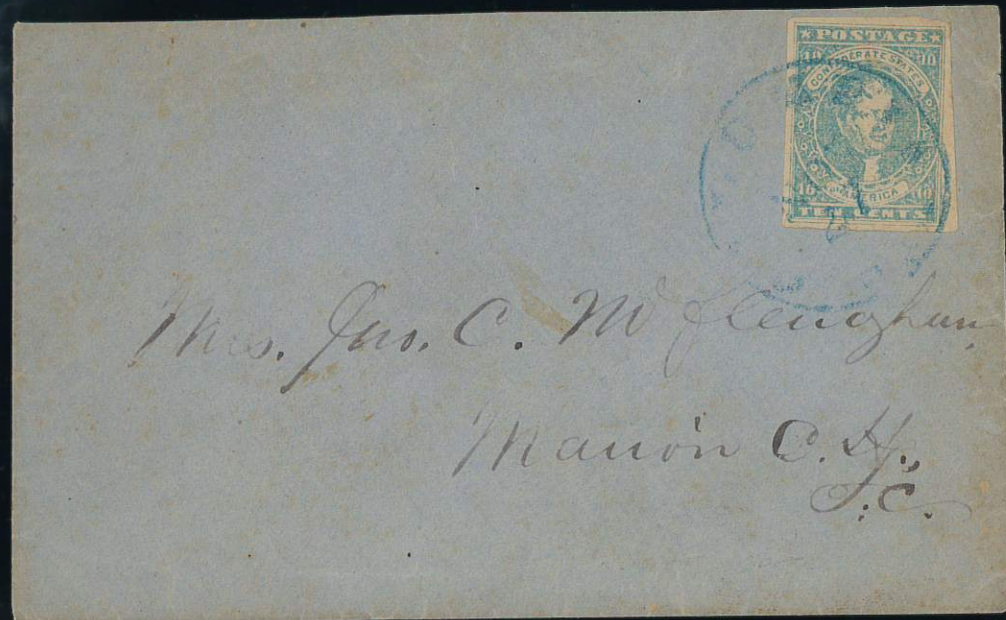 ★POSTAGE★
10 10
CONFEDERATE STATES
OF AMERICA
10 10
TEN CENTS
27
Mrs. Jno. C. McClenaghan,
Marion C. H.,
S.C.